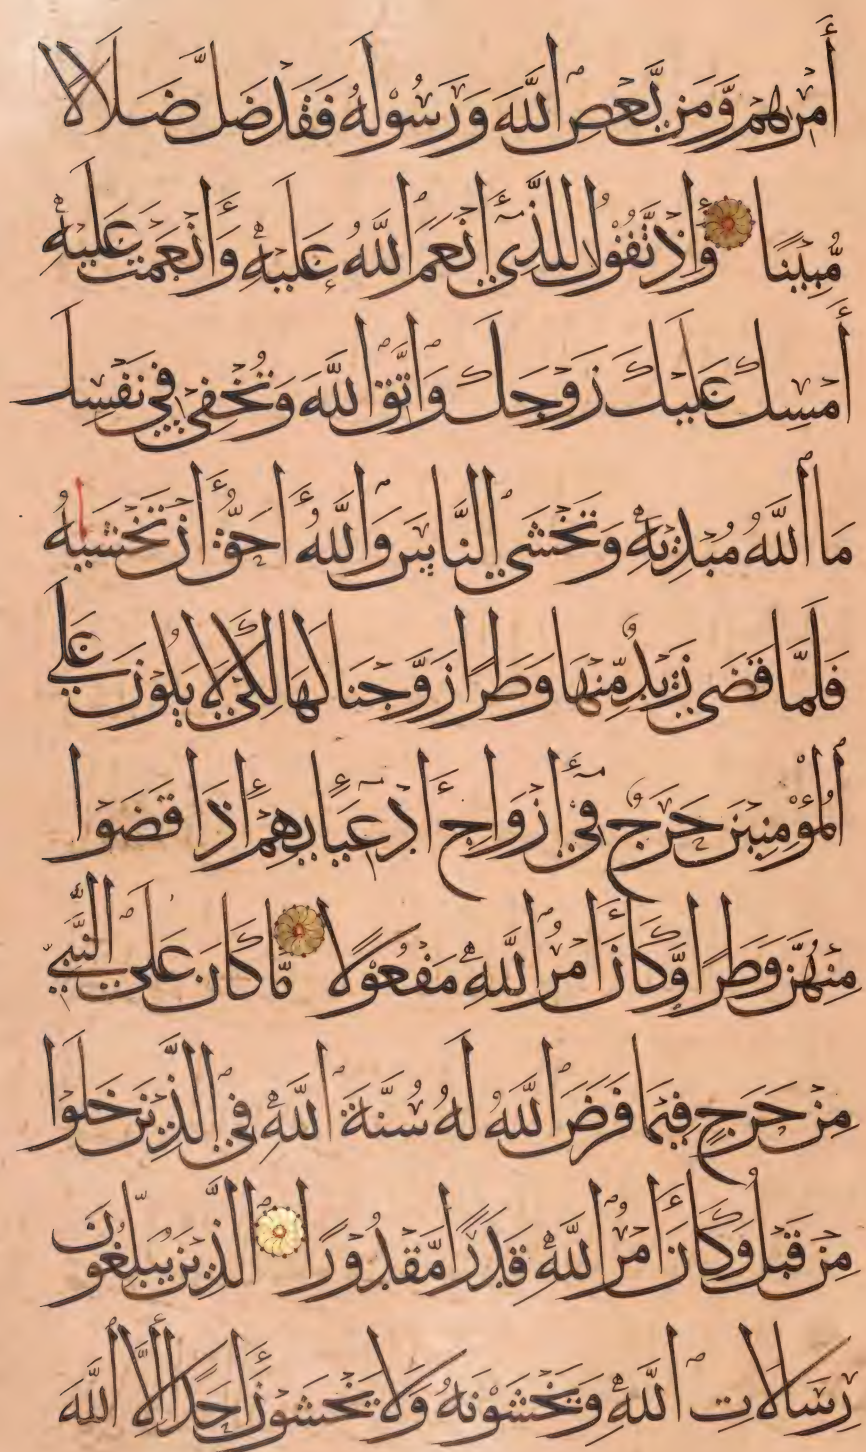 أَمْرِهِمْ وَّمَن يَّعْصِ اللَّهَ وَرَسُوْلَهُ فَقَدْ ضَلَّ ضَلَالًا
مُّبِيْنًا وَإِذْ تَقُوْلُ لِلَّذِيْ أَنْعَمَ اللَّهُ عَلَيْهِ وَأَنْعَمْتَ عَلَيْهِ
أَمْسِكْ عَلَيْكَ زَوْجَكَ وَاتَّقِ اللَّهَ وَتُخْفِيْ فِيْ نَفْسِكَ
مَا اللَّهُ مُبْدِيْهِ وَتَخْشَى النَّاسَ وَاللَّهُ أَحَقُّ أَنْ تَخْشَىٰهُ
فَلَمَّا قَضَى زَيْدٌ مِّنْهَا وَطَرًا زَوَّجْنَاكَهَا لِكَيْ لَا يَكُوْنَ عَلَى
الْمُؤْمِنِيْنَ حَرَجٌ فِيْ أَزْوَاجِ أَدْعِيَآئِهِمْ إِذَا قَضَوْا
مِنْهُنَّ وَطَرًا وَّكَانَ أَمْرُ اللَّهِ مَفْعُوْلًا مَّا كَانَ عَلَى النَّبِيِّ
مِنْ حَرَجٍ فِيْمَا فَرَضَ اللَّهُ لَهُ سُنَّةَ اللَّهِ فِي الَّذِيْنَ خَلَوْا
مِنْ قَبْلُ وَكَانَ أَمْرُ اللَّهِ قَدَرًا مَّقْدُوْرًا الَّذِيْنَ يُبَلِّغُوْنَ
رِسَالَاتِ اللَّهِ وَيَخْشَوْنَهُ وَلَا يَخْشَوْنَ أَحَدًا إِلَّا اللَّهَ